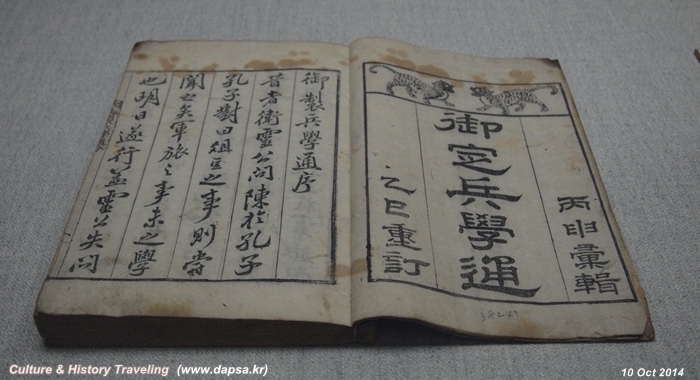 丙申彙輯
御定兵學通
乙巳重訂
38247
御製兵學通序
昔者衛靈公問陳於孔子
孔子對曰俎豆之事則嘗
聞之矣軍旅之事未之學
也明日遂行盖靈公失問
Culture & History Traveling (www.dapsa.kr)
10 Oct 2014